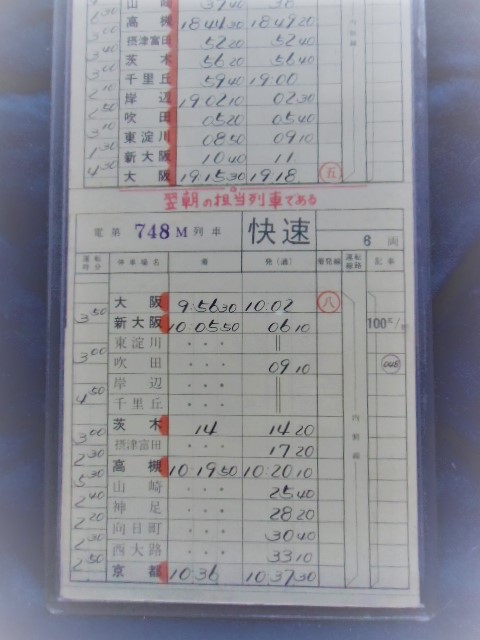 山崎 3740 38
高槻 184430 184920
340 摂津富田 5220 5240
300 茨木 5620 5640
340 千里丘 5940 19:00
210 岸辺 19,0210 0230
250 吹田 0520 0540
310 東淀川 0850 0910
130 新大阪 1040 11
430 大阪 19,1530 19,18. 五
内側線
翌朝の担当列車である
電第 748M 列車 快速 6両
運転時分 停車場名 着 発(通) 着発線 運転線路 記事
大阪 9:5630 10:02 八
350 新大阪 10:0550 0610 100
東淀川 ・・・ ||
300 吹田 ・・・ 0910
岸辺 ・・・ ||
450 千里丘 ・・・ ||
茨木 14 1420
300 摂津富田 ・・・ 1720
230 高槻 10:1950 10:2010
530 山崎 ・・・ 2540
240 神足 ・・・ 2820
220 向日町 ・・・ 3040
230 西大路 ・・・ 3310
250 京都 10:36 10:3730
内側線